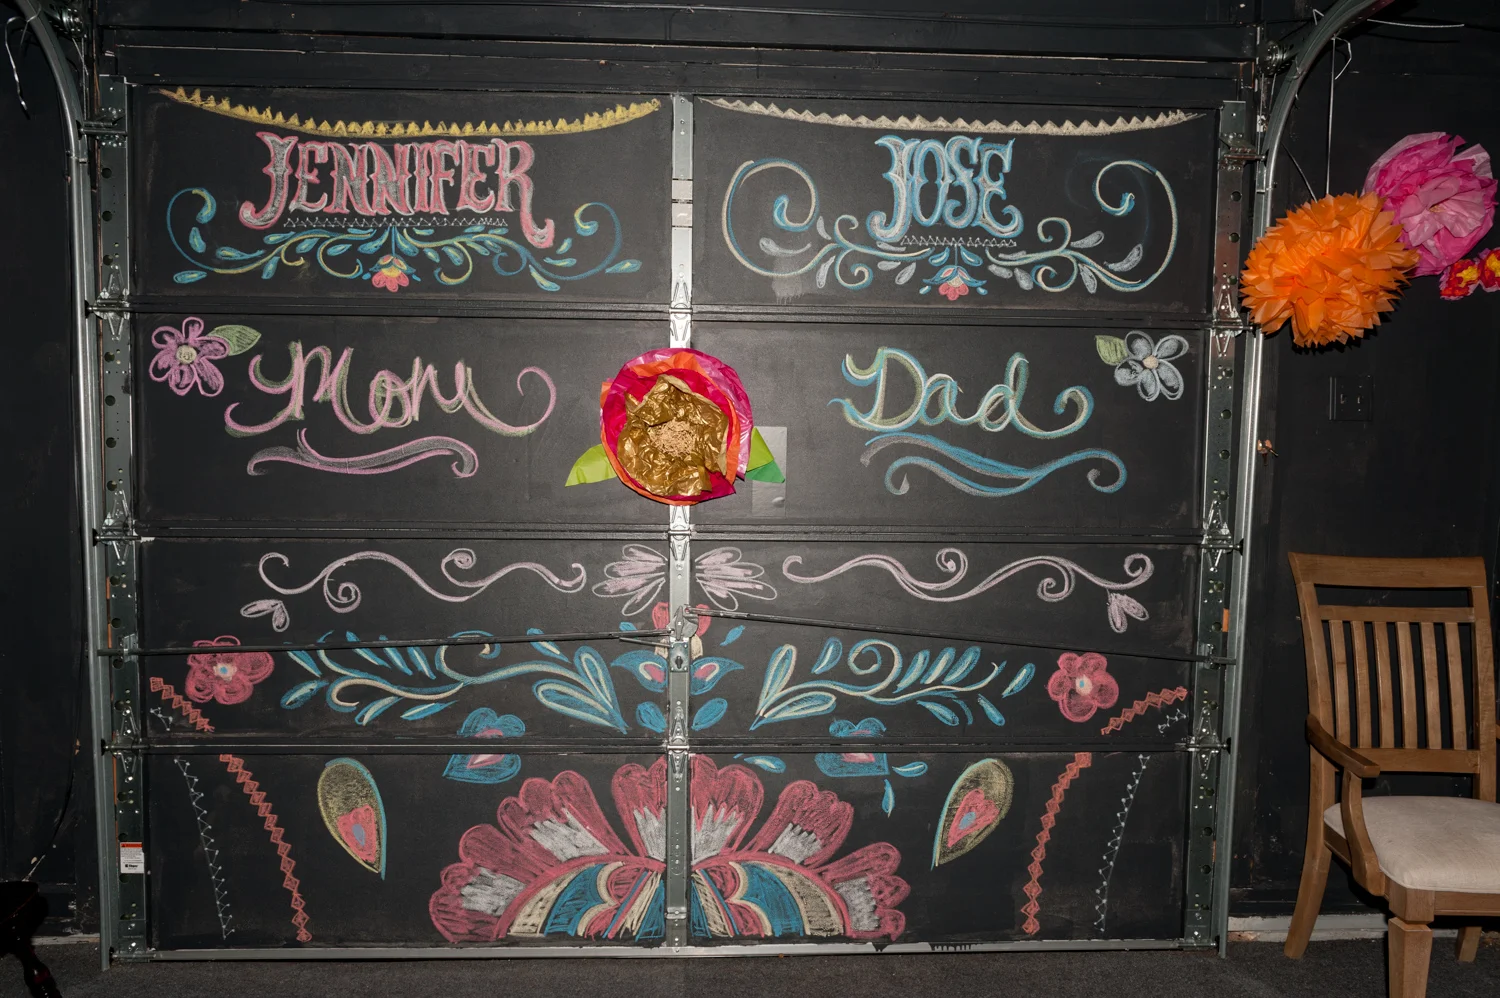 JENNIFER
JOSE
Mom
Dad